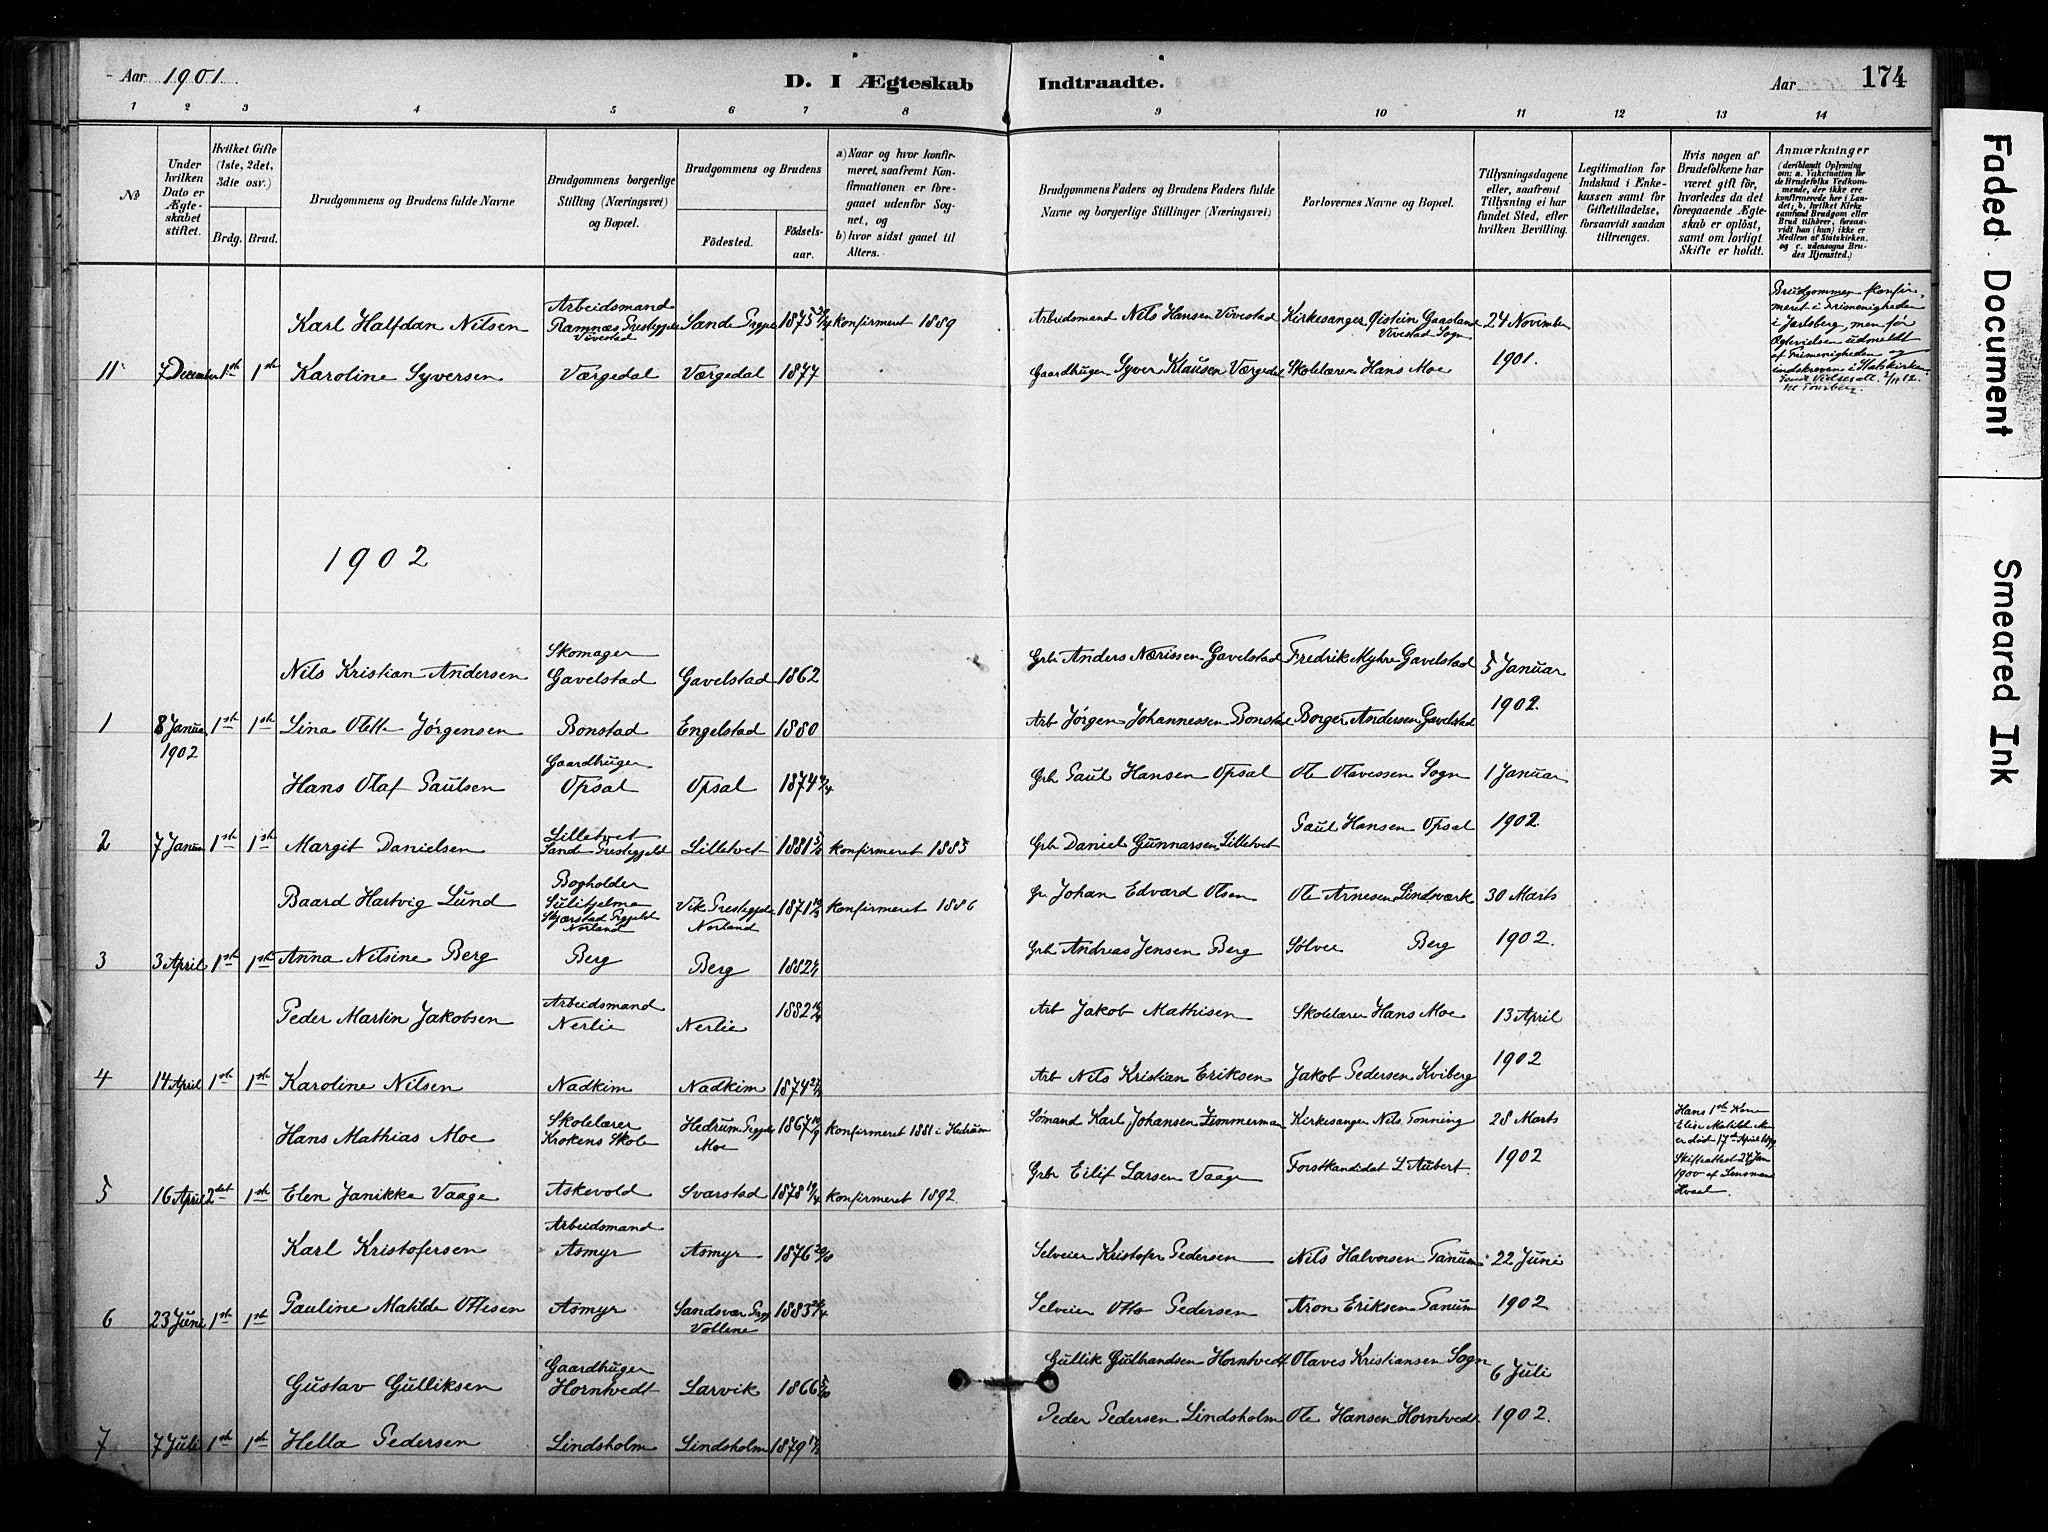 Aar 1901.
D. I Ægteskab Indtraadte.
Aar 174
1 2 3 4 5 6 7 8 9 10 11 12 13 14
No
Under hvilken Dato er Ægteskabet stiftet.
Hvilket Gifte (1ste, 2det, 3die osv.)
Brdg. Brud.
Brudgommens og Brudens fulde Navne
Brudgommens borgerlige Stilling (Næringsvei) og Bopæl.
Brudgommens og Brudens
Födested.
Födselsaar.
a) Naar og hvor konfirmeret, saafremt Konfirmationen er foregaaet udenfor Sognet, og
b) hvor sidst gaaet til Alters.
Brudgommens Faders og Brudens Faders fulde Navne og borgerlige Stillinger (Næringsvei)
Forlovernes Navne og Bopæl.
Tillysningsdagene eller, saafremt Tillysning ei har fundet Sted, efter hvilken Bevilling.
Legitimation for Indskud i Enkekassen samt for Giftetilladelse, forsaavidt saadan tiltrænges.
Hvis nogen af Brudefolkene har været gift för, hvorledes da det foregaaende Ægteskab er oplöst, samt om lovligt Skifte er holdt.
Anmærkninger
(deriblandt Oplysning om: a. Vakcination for de Brudefolks Vedkommende, der ikke ere konfirmerede her i Landet; b, hvilket Kirkesamfund Brudgom eller Brud tilhörer, forsaavidt han (hun) ikke er Medlem af Statskirken, og c. udensogns Brudes Hjemsted.)
Karl Halfdan Nilsen
Arbeidsmand
Ramnæs Prestegjeld
Vivestad
Sande Prgjeld 1875
konfirmeret 1889
Arbeidsmand Nils Hansen Vivestad
Kirkesanger Øistein Gaasland
Vivestad Sogn
24 November
1901.
Brudgommen konfirmeret i Frimenigheden
i Jarlsberg, men før
Ægtevielsen udmeldt
af Frimenigheden og
indskreven i Statskirken.
11 7 December 1ste 1ste
Karoline Syversen
Værgedal Værgedal 1877
Gaardbruger Syver Klausen Værgedal
Skolelærer Hans Moe
1902
Nils Kristian Andersen
Skomager
Gavelstad Gavelstad 1862
Grbr Anders Nærissen Gavelstad
Fredrik Myhre Gavelstad
5 Januar
1902.
1 8 Januar 1902 1ste 1ste
Lina Olette Jørgensen
Bonstad Engelstad 1880
Arb Jørgen Johannessen Bonstad
Borger Andersen Gavelstad
Hans Olaf Paulsen
Gaardbruger
Opsal Opsal 1874
Grbr Paul Hansen Opsal
Ole Olavessen Sogn
1 Januar
1902.
Paul Hansen Opsal
2 7 Januar 1ste 1ste
Margit Danielsen
Lilletvet
Sande Prestegjeld
Lilletvet 1881
konfirmeret 1885
Grbr Daniel Gunnarsen Lilletvet
Baard Hartvig Lund
Bogholder
Sulitjelma
Skjærstad Prgjeld
Norland
Vik Prestegjeld
Norland
1871
konfirmeret 1886
Gr. Johan Edvard Olsen
Ole Arnesen Lindsværk
30 Marts
1902.
3 3 April 1ste 1ste
Anna Nilsine Berg
Berg Berg 1882
Grbr Andreas Jensen Berg
Sølver Berg
Peder Martin Jakobsen
Arbeidsmand
Nerlie Nerlie 1882
Arb Jakob Mathisen
Skolelærer Hans Moe
13 April
1902
4 14 April 1ste 1ste
Karoline Nilsen
Nadkim Nadkim 1874
Arb Nils Kristian Eriksen
Jakob Pedersen Kviberg
Hans Mathias Moe
Skolelærer
Krokens Skole
Hedrum Prgjeld
Moe
1867
konfirmeret 1881 i Hedrum
Sømand Karl Johansen Zimmerman
Kirkesanger Nils Tonning
28 Marts
1902
Hans 1ste Kone
Elise Matilde Moe
er død 17de April
Skifteattest 24 Jan
1900 af Lensmand
Hvaal.
5 16 April 2det 1ste
Elen Janikke Vaage
Askevold Svarstad 1878 19/4
konfirmeret 1892.
Grbr Eilif Larsen Vaage
Forstkandidat L Aubert.
Karl Kristofersen
Arbeidsmand
Asmyr Asmyr 1876
Selveier Kristofer Pedersen
Nils Halvorsen Tanum
22 Juni
1902
6 23 Juni 1ste 1ste
Pauline Matilde Ottesen
Asmyr
Sandsvær Prgj
Vollene
1883
Selveier Otto Pedersen
Aron Eriksen Tanum
Gustav Gulliksen
Gaardbruger
Horntvedt Larvik 1866
Gullik Gulbrandsen Horntvedt
Olaves Kristiansen Sogn
6 Juli
1902.
7 7 Juli 1ste 1ste
Hella Pedersen
Lindsholm Lindsholm 1879
Peder Pedersen Lindsholm
Ole Hansen Horntvedt
Faded Document
Smeared Ink